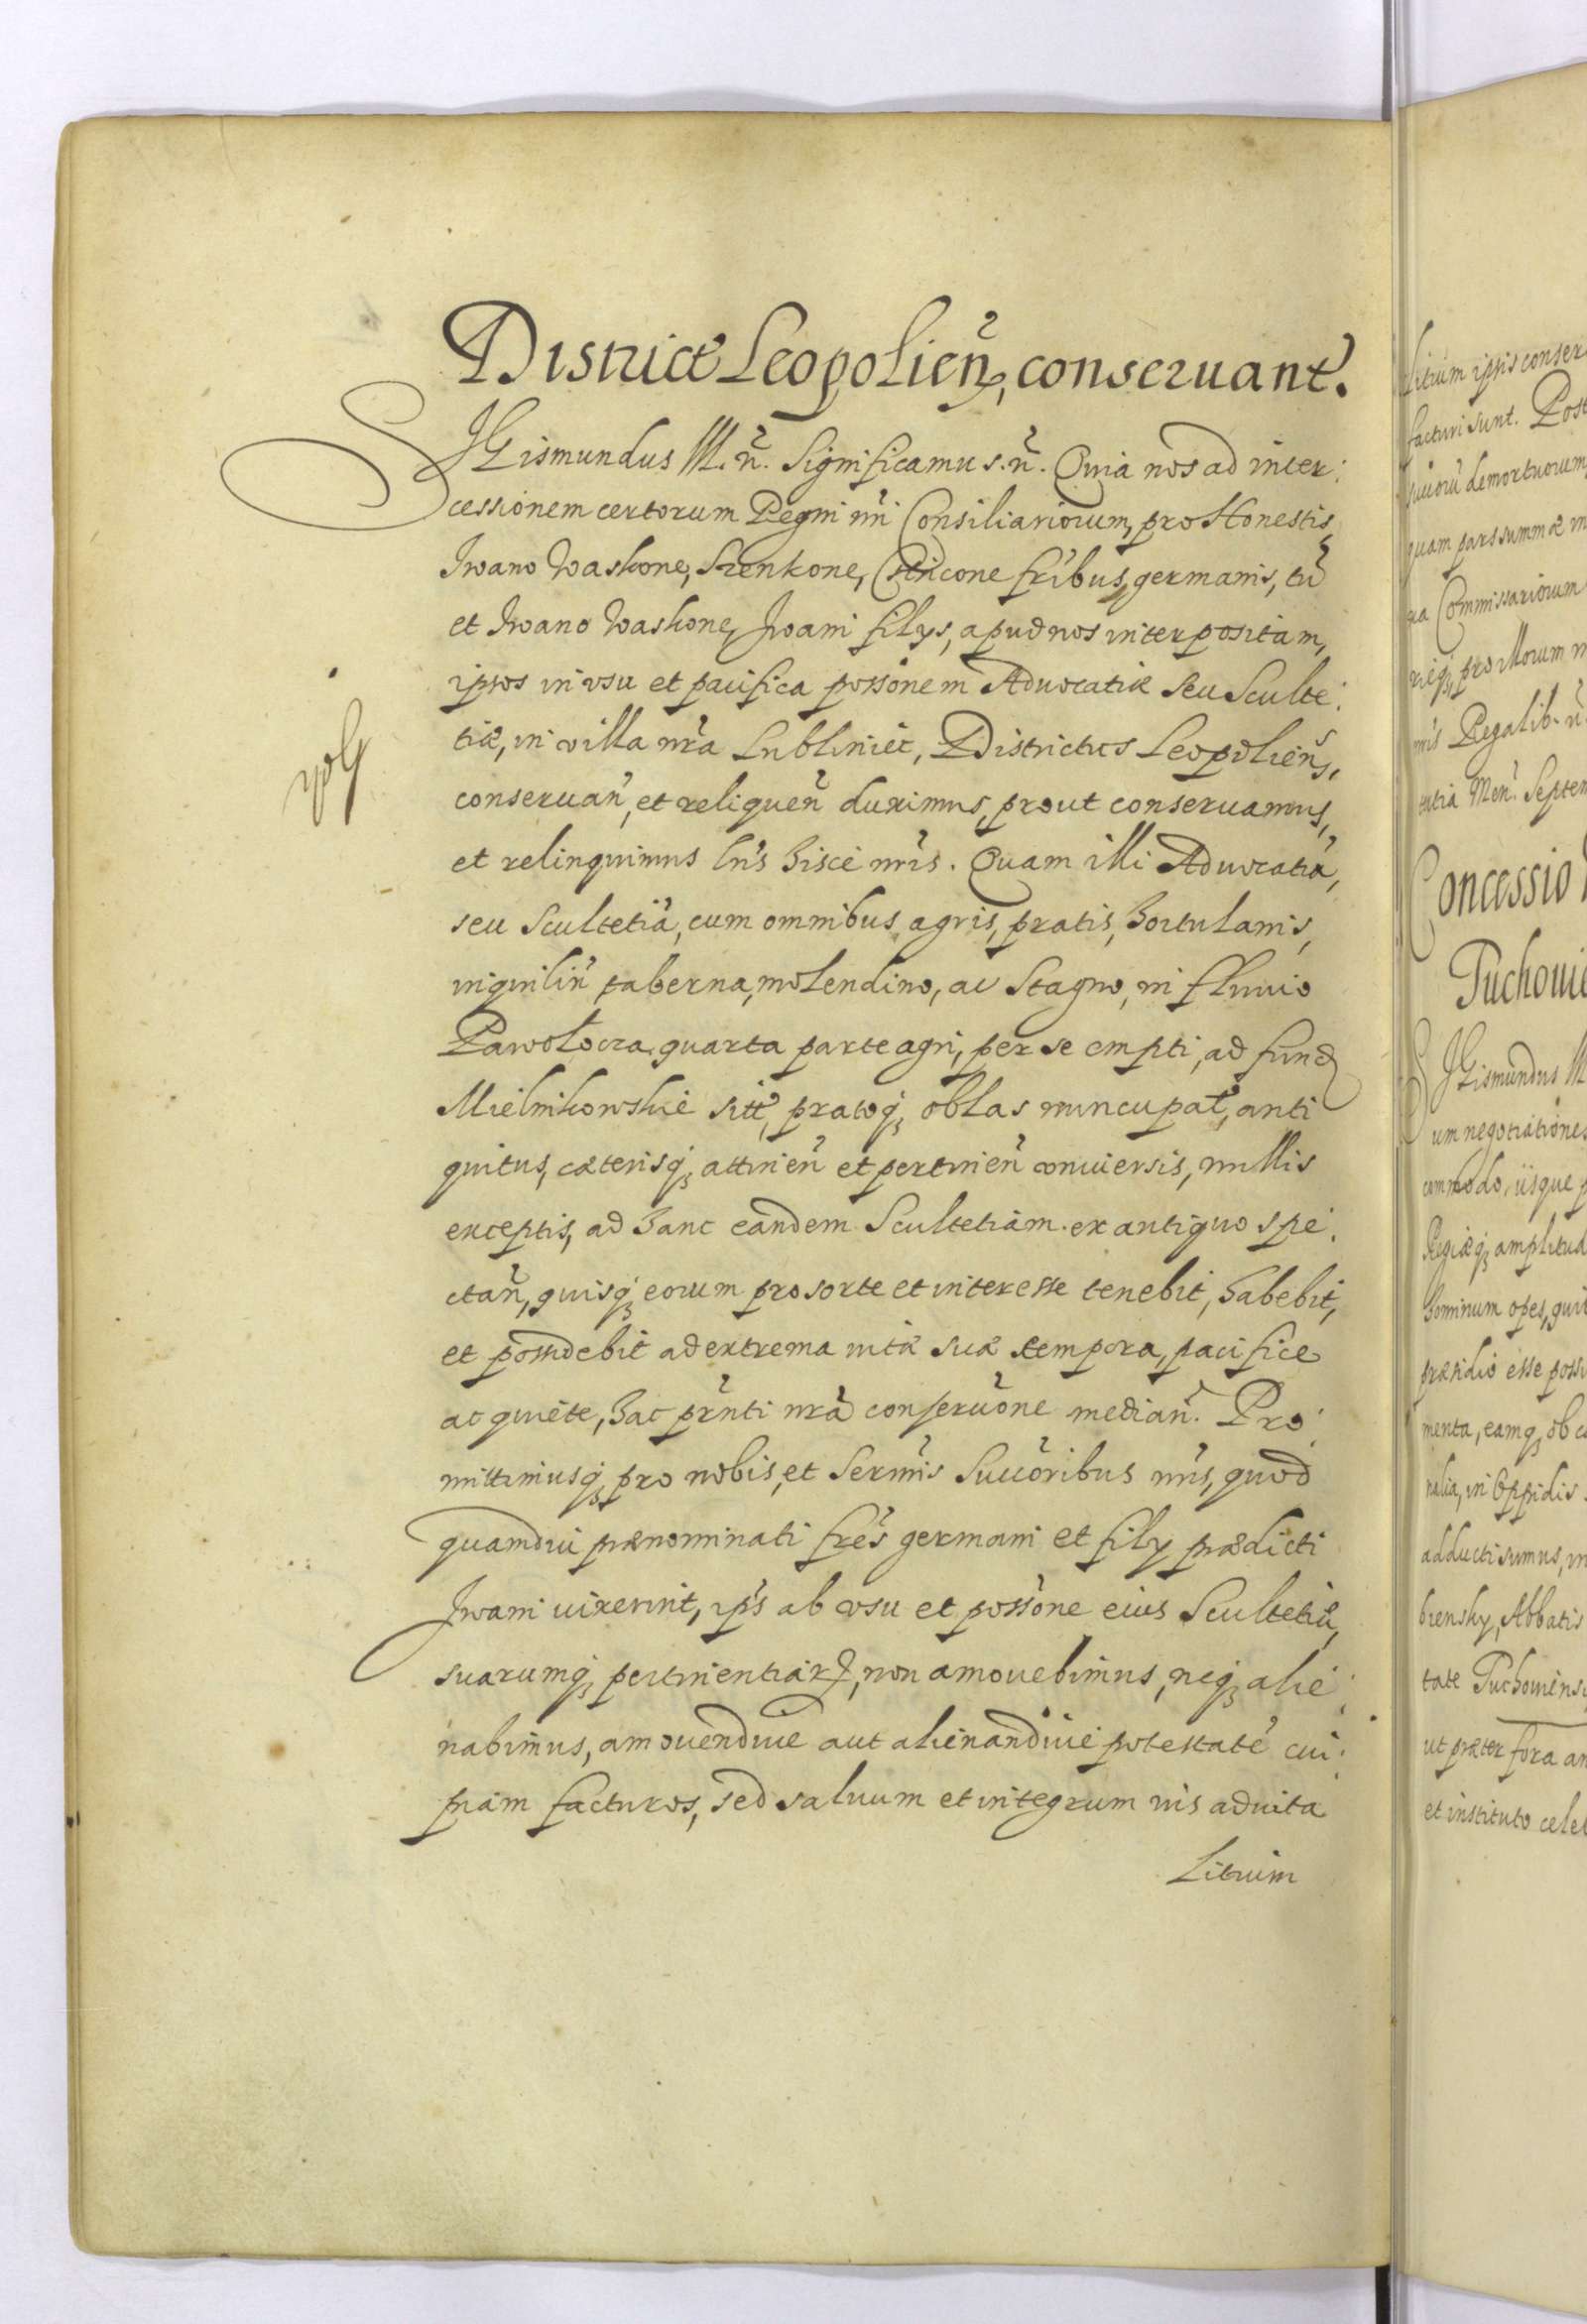 District Leopolien̄, conseruant.
SIGismundus III. n̄. Significamus. n̄. Quia nos ad inter:
cessionem certorum Regni nr̄i Consiliariorum, pro Honestis
Iwano Waskone, Szenkone, fr̄ibus, germanis, tū
et Iwano Waskone, Iwani filys, apud nos interpositam,
ipsos in vsu et pacifica possōnem Aduocatiæ seu Sculte:
tiæ, in villa nr̄a Lubliniec, Districtus Leopolien̄s,
conseruan̄, et reliquen̄ duximus, prout conseruamus,
et relinquimus lr̄is hisce nr̄is. Quam illi Aduocatiā,
seu Scultetiā, cum omnibus agris, pratis, hortulanis,
inquilin̄ taberna, molendino, ac Stagno, in fluuio
quarta parte agri, per se empti, ad fund
Mielnikowskie sitt, pratoq; oblas nuncupat, anti
quitus, cæterisq; attinen̄ et pertinen̄ vniuersis, nullis
exceptis, ad hanc eandem Scultetiam ex antiquo spe:
ctan̄, quisq; eorum pro sorte et interesse tenebit, habebit,
et possidebit ad extrema vitæ suæ tempora, pacifice
ac quiete, hac pr̄nti nr̄a conseruōne median̄. Pro:
mittimusq; pro nobis, et Sermīs Succōribus nr̄is, quod
quamdiu prænominati frēs germani et fily prædicti
Iwani vixerint, ip̄s ab vsu et possōne eius Scultetiæ,
suarumq; pertinentiar, non amouebimus, neq; alie:
nabimus, amouendiue aut alienandiue potestatē cui:
piam facturos, sed saluum et integrum ius aduita
Litium
Litium ipsis conser
facturi sunt. Post
demortuorum
quam pars summæ
Commissariorum
pro illorum
nr̄is Regalib. n̄
tertia Men̄. Septem
Concessio
Tuchouie
SIGismundus III
um negotiationes
commodo, iisque p
Regiæq; amplitud
hominum opes, qui
præsidio esse possu
menta, eamq; ob c
nalia, in Oppidis
adducti sumus,
Abbatis
tate Tuchouiensi
ut præter fora an
et instituto celeb